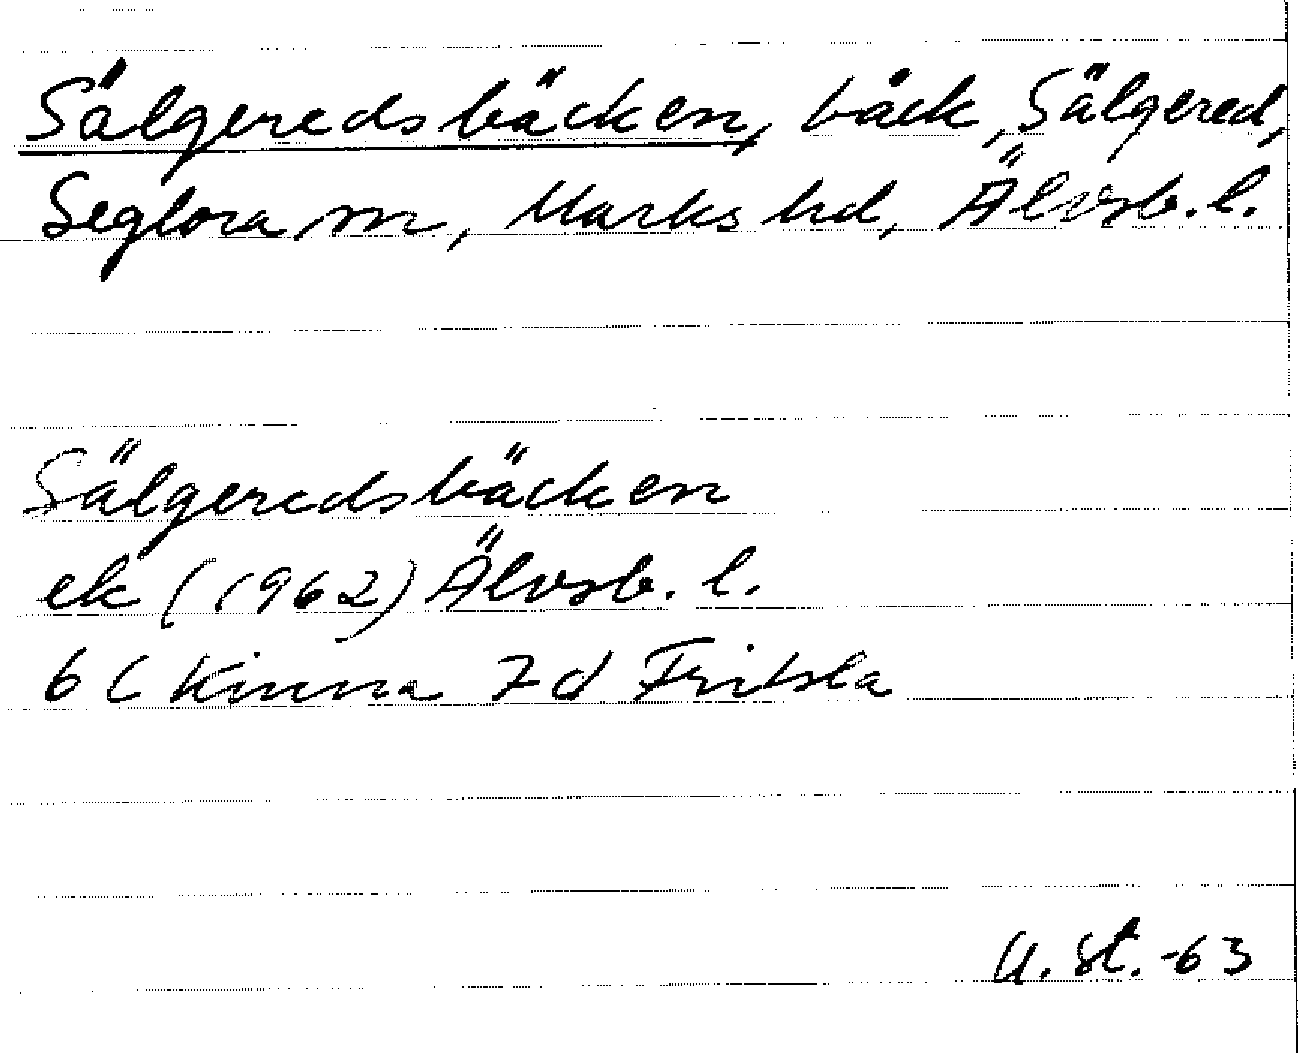 Sälgeredsbäcken, bäck, Sälgered,
Seglora sn, Marks hd, Älvsb. l.
Sälgeredsbäcken
ek (1962) Älvsb. l.
6 C Kinna 7d Fritsla
U. St. -63